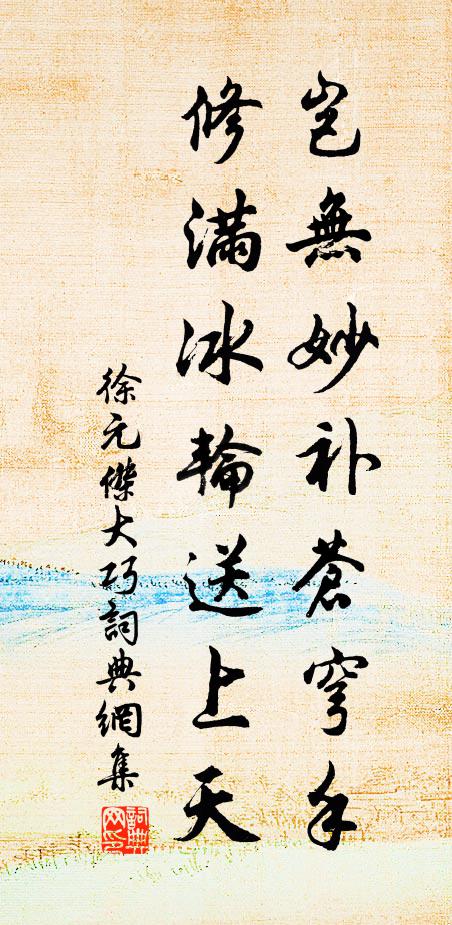 岂無妙补蒼穹手
修滿冰輪送上天
徐元傑大巧詞典網集
詞典
网印